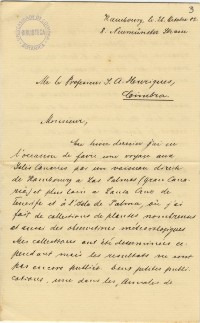 3
Hambourg, le 28 Octobre 02
8. Neumünster Strasse
Mr le Professeur J. A. Henriques,
Coimbra.
Monsieur,
l'occasion de faire une voyage aux
Isles Canaries par un vaisseau direkt
de Hambourg a Las Palmas (Gran Cana
ria) et plus loin a Santa Cruz de
Tenerife et à l'Isla de Palma, où j'ai
fait de collections de plantes nombreuses
et aussi des observations météorologiques
Mes collections ont été determinées ce
pendant mais les resultats ne sont
pas encore publiés. Deux petites publi
cations, une dans les Annales de